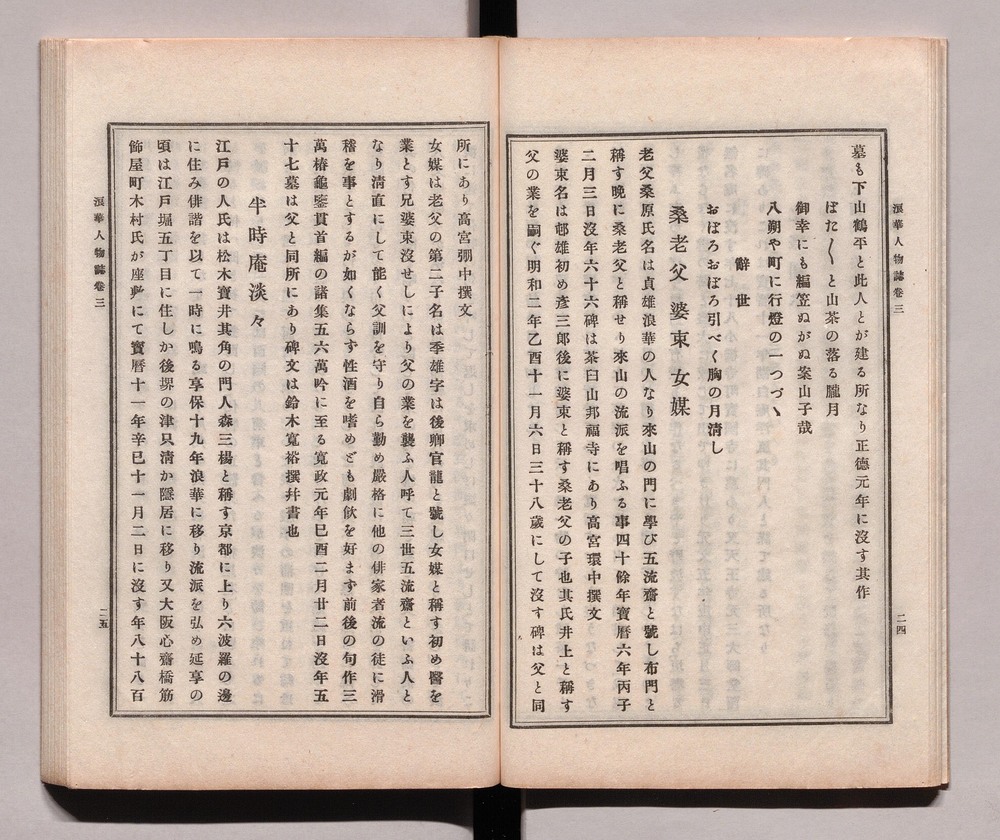 浪華人物誌卷三
二四
墓も下山鶴平と此人とが建る所なり正德元年に沒す其作
ぼた〱と山茶の落る朧月
御幸にも編笠ぬがぬ案山子哉
八朔や町に行燈の一つづヽ
辭世
おぼろおぼろ引べく胸の月淸し
桑老父 婆束 女媒
老父桑原氏名は貞雄浪華の人なり來山の門に學び五流齋と號し布門と
稱す晩に桑老父と稱せり來山の流派を唱ふる事四十餘年寶曆六年丙子
二月三日沒年六十六碑は茶臼山邦福寺にあり高宮環中撰文
婆束名は邨雄初め彥三郎後に婆束と稱す桑老父の子也其氏井上と稱す
父の業を嗣ぐ明和二年乙酉十一月六日三十八歲にして沒す碑は父と同
所にあり高宮彌中撰文
女媒は老父の第二子名は季雄字は後卿官龍と號し女媒と稱す初め醫を
業とす兄婆束沒せしにより父の業を襲ふ人呼て三世五流齋といふ人と
なり淸直にして能く父訓を守り自ら勤め嚴格に他の俳家者流の徒に滑
稽を事とするが如くならず性酒を嗜めども劇飮を好まず前後の句作三
萬椿龜鑒貫首編の諸集五六萬吟に至る寬政元年巳酉二月廿二日沒年五
十七墓は父と同所にあり碑文は鈴木寬裕撰幷書也
半時庵淡々
江戶の人氏は松木寶井其角の門人森三楊と稱す京都に上り六波羅の邊
に住み俳諧を以て一時に鳴る享保十九年浪華に移り流派を弘め延享の
頃は江戶堀五丁目に住しか後堺の津只淸か隱居に移り又大阪心齋橋筋
飾屋町木村氏が座敷にて寶曆十一年辛巳十一月二日に沒す年八十八百
浪華人物誌卷三
二五